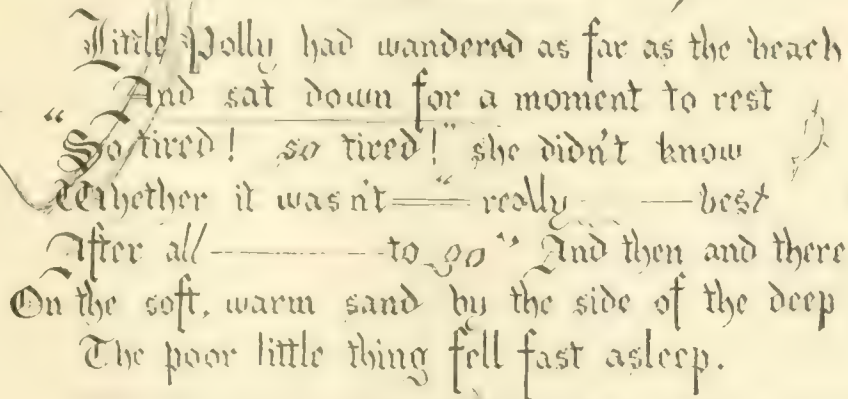 Little Polly had wandered as far as the beach
And sat down for a moment to rest
"So tired! so tired!" she didn't know
Whether it wasn't — "really — best
After all — to go" And then and there
On the soft, warm sand by the side of the deep
The poor little thing fell fast asleep.